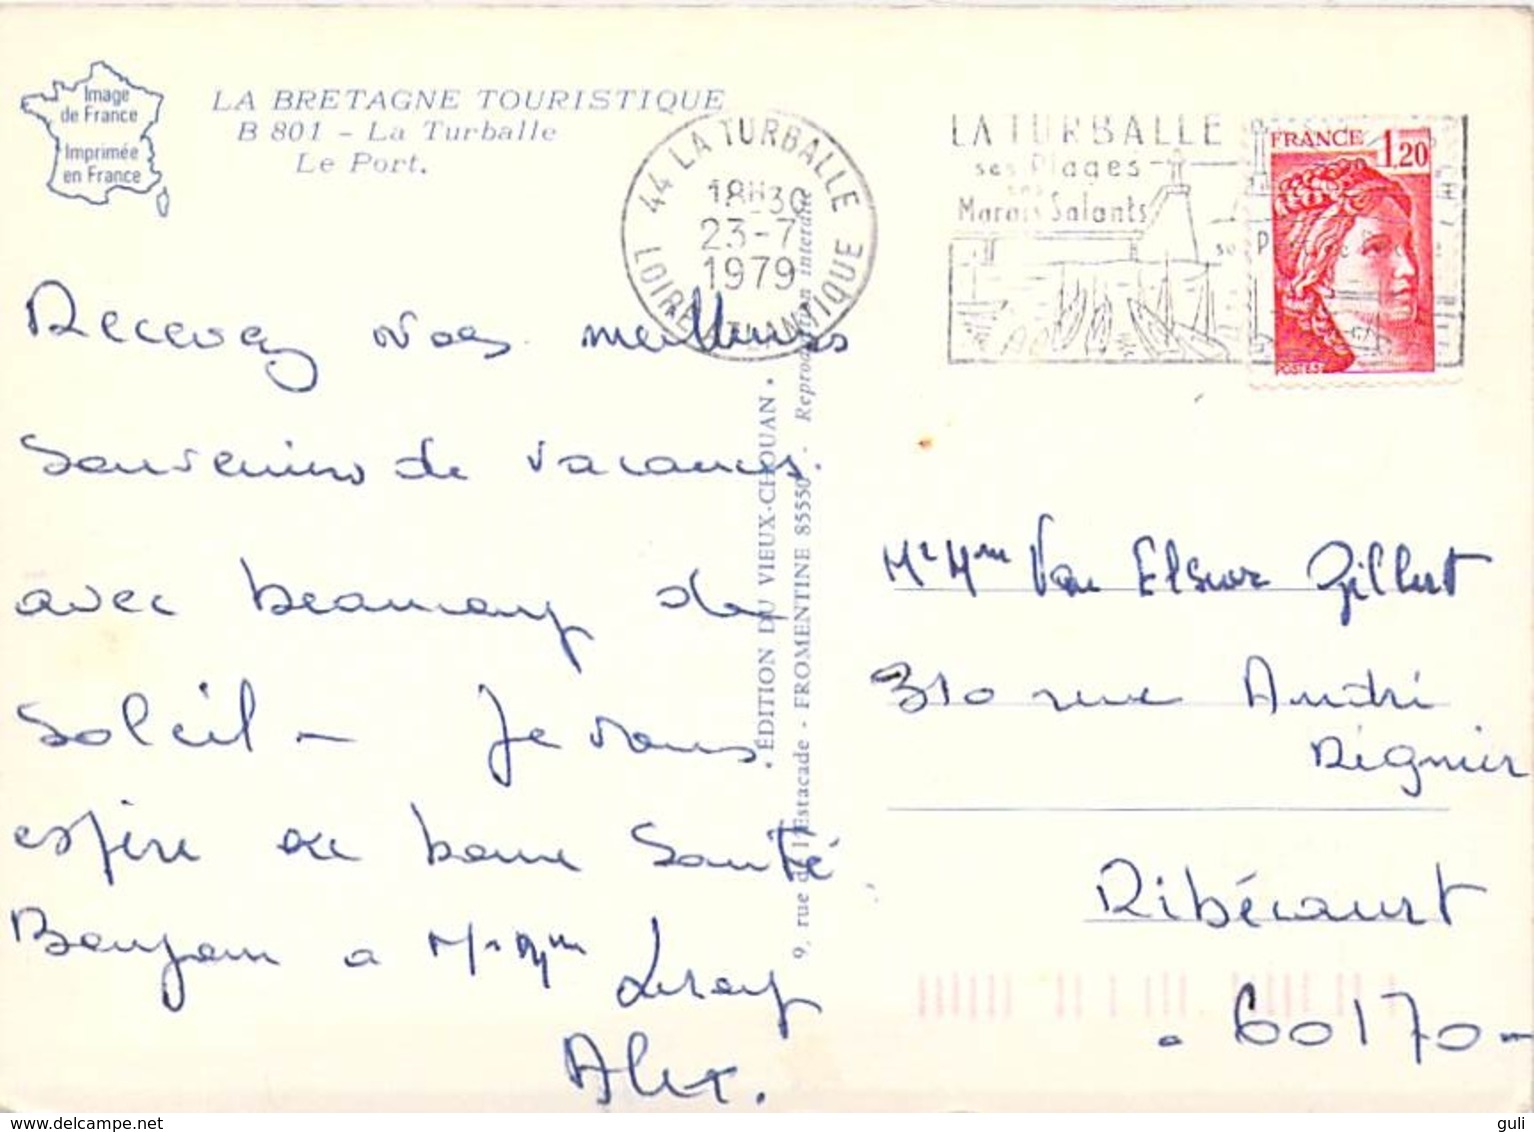 Image
de France
Imprimée
en France
LA BRETAGNE TOURISTIQUE
B 801 - La Turballe
Le Port.
44 LA TURBALLE
18H30
23-7
1979
LOIRE ATLANTIQUE
LA TURBALLE
ses Plages
ses
Marais Salants
son Port de
FRANCE 1,20
POSTES
Recevez nos meilleurs
souvenirs de vacances.
avec beaucoup de
Soleil - Je vous
espère en bonne Santé
Bonjour a Mr Mme Leroy
Alex.
• ÉDITION DU VIEUX-CHOUAN •
9, rue de l'Estacade - FROMENTINE 85550 - Reproduction interdite
Mr Mme Van Gilbert
310 rue André
Régnier
Ribécourt
60170
guli